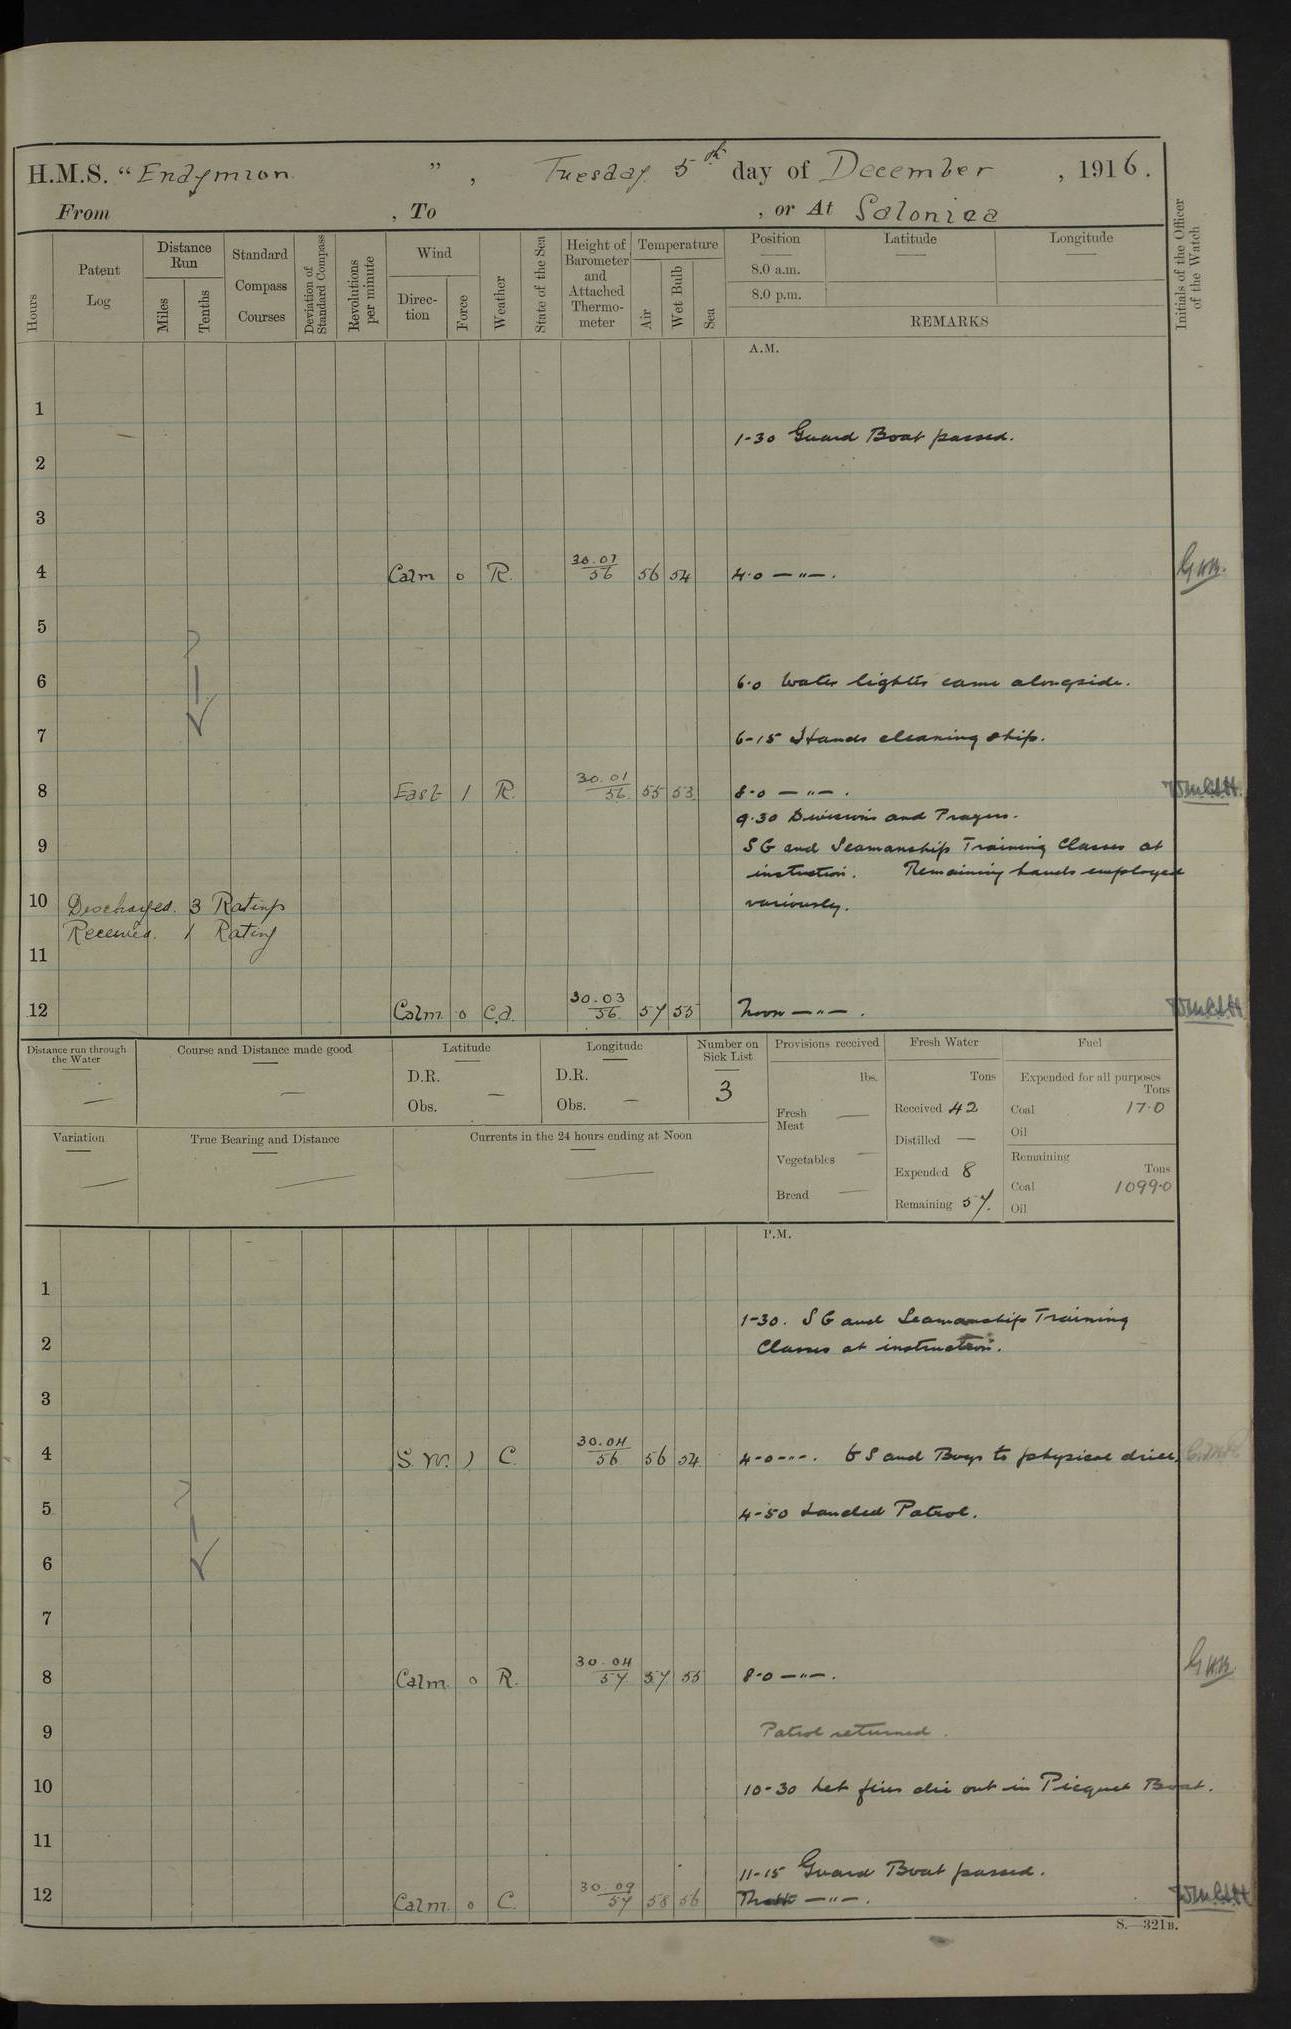 H.M.S. “Endymion ”, Tuesday 5th day of December, 1916.
From , To , or At Salonica
Hours
Patent Log
Distance Run
Miles
Tenths
Standard Compass Courses
Deviation of Standard Compass
Revolutions per minute
Wind
Direc-tion
Force
Weather
State of the Sea
Height of Barometer and Attached Thermo-meter
Temperature
Air
Wet Bulb
Sea
Position
8.0 a.m.
8.0 p.m.
Latitude
Longitude
REMARKS
Initials of the Officer of the Watch
A.M.
1
1-30 Guard Boat passed.
2
3
4 Calm 0 R. 30.07 56 56 54 4.0 — " — .
5
6 6.0 Water lighter came alongside.
7 6-15 Hands cleaning ship.
8 East 1 R. 30.01 56 55 53 8.0 — " — .
9.30 Divisions and Prayers.
9 S G and Seamanship Training Classes at
instruction. Remaining hands employed
10 Discharged. 3 Ratings variously.
Received. 1 Rating
11
12 Calm 0 C.d. 30.03 56 57 55 Noon — " — .
Distance run through the Water —
Course and Distance made good —
Latitude
D.R.
Obs. —
Longitude
D.R.
Obs. —
Number on Sick List
3
Provisions received
lbs.
Fresh Meat —
Vegetables —
Bread —
Fresh Water
Tons
Received 42
Distilled —
Expended 8
Remaining 57.
Fuel
Expended for all purposes
Tons
Coal 17.0
Oil
Remaining
Tons
Coal 1099.0
Oil
Variation —
True Bearing and Distance —
Currents in the 24 hours ending at Noon —
P.M.
1
1-30. S G and Seamanship Training
2 Classes at instruction.
3
4 S.W. 1 C. 30.04 56 56 54. 4-0 - " - . O S and Boys to physical drill.
5 4-50 Landed Patrol.
6
7
8 Calm. 0 R. 30.04 57 57 55 8.0 — " — .
9 Patrol returned.
10 10-30 Let fires die out in Picquet Boat.
11
11-15 Guard Boat passed.
12 Calm. 0 C. 30.09 57 58 56 — " — .
S.—321B.